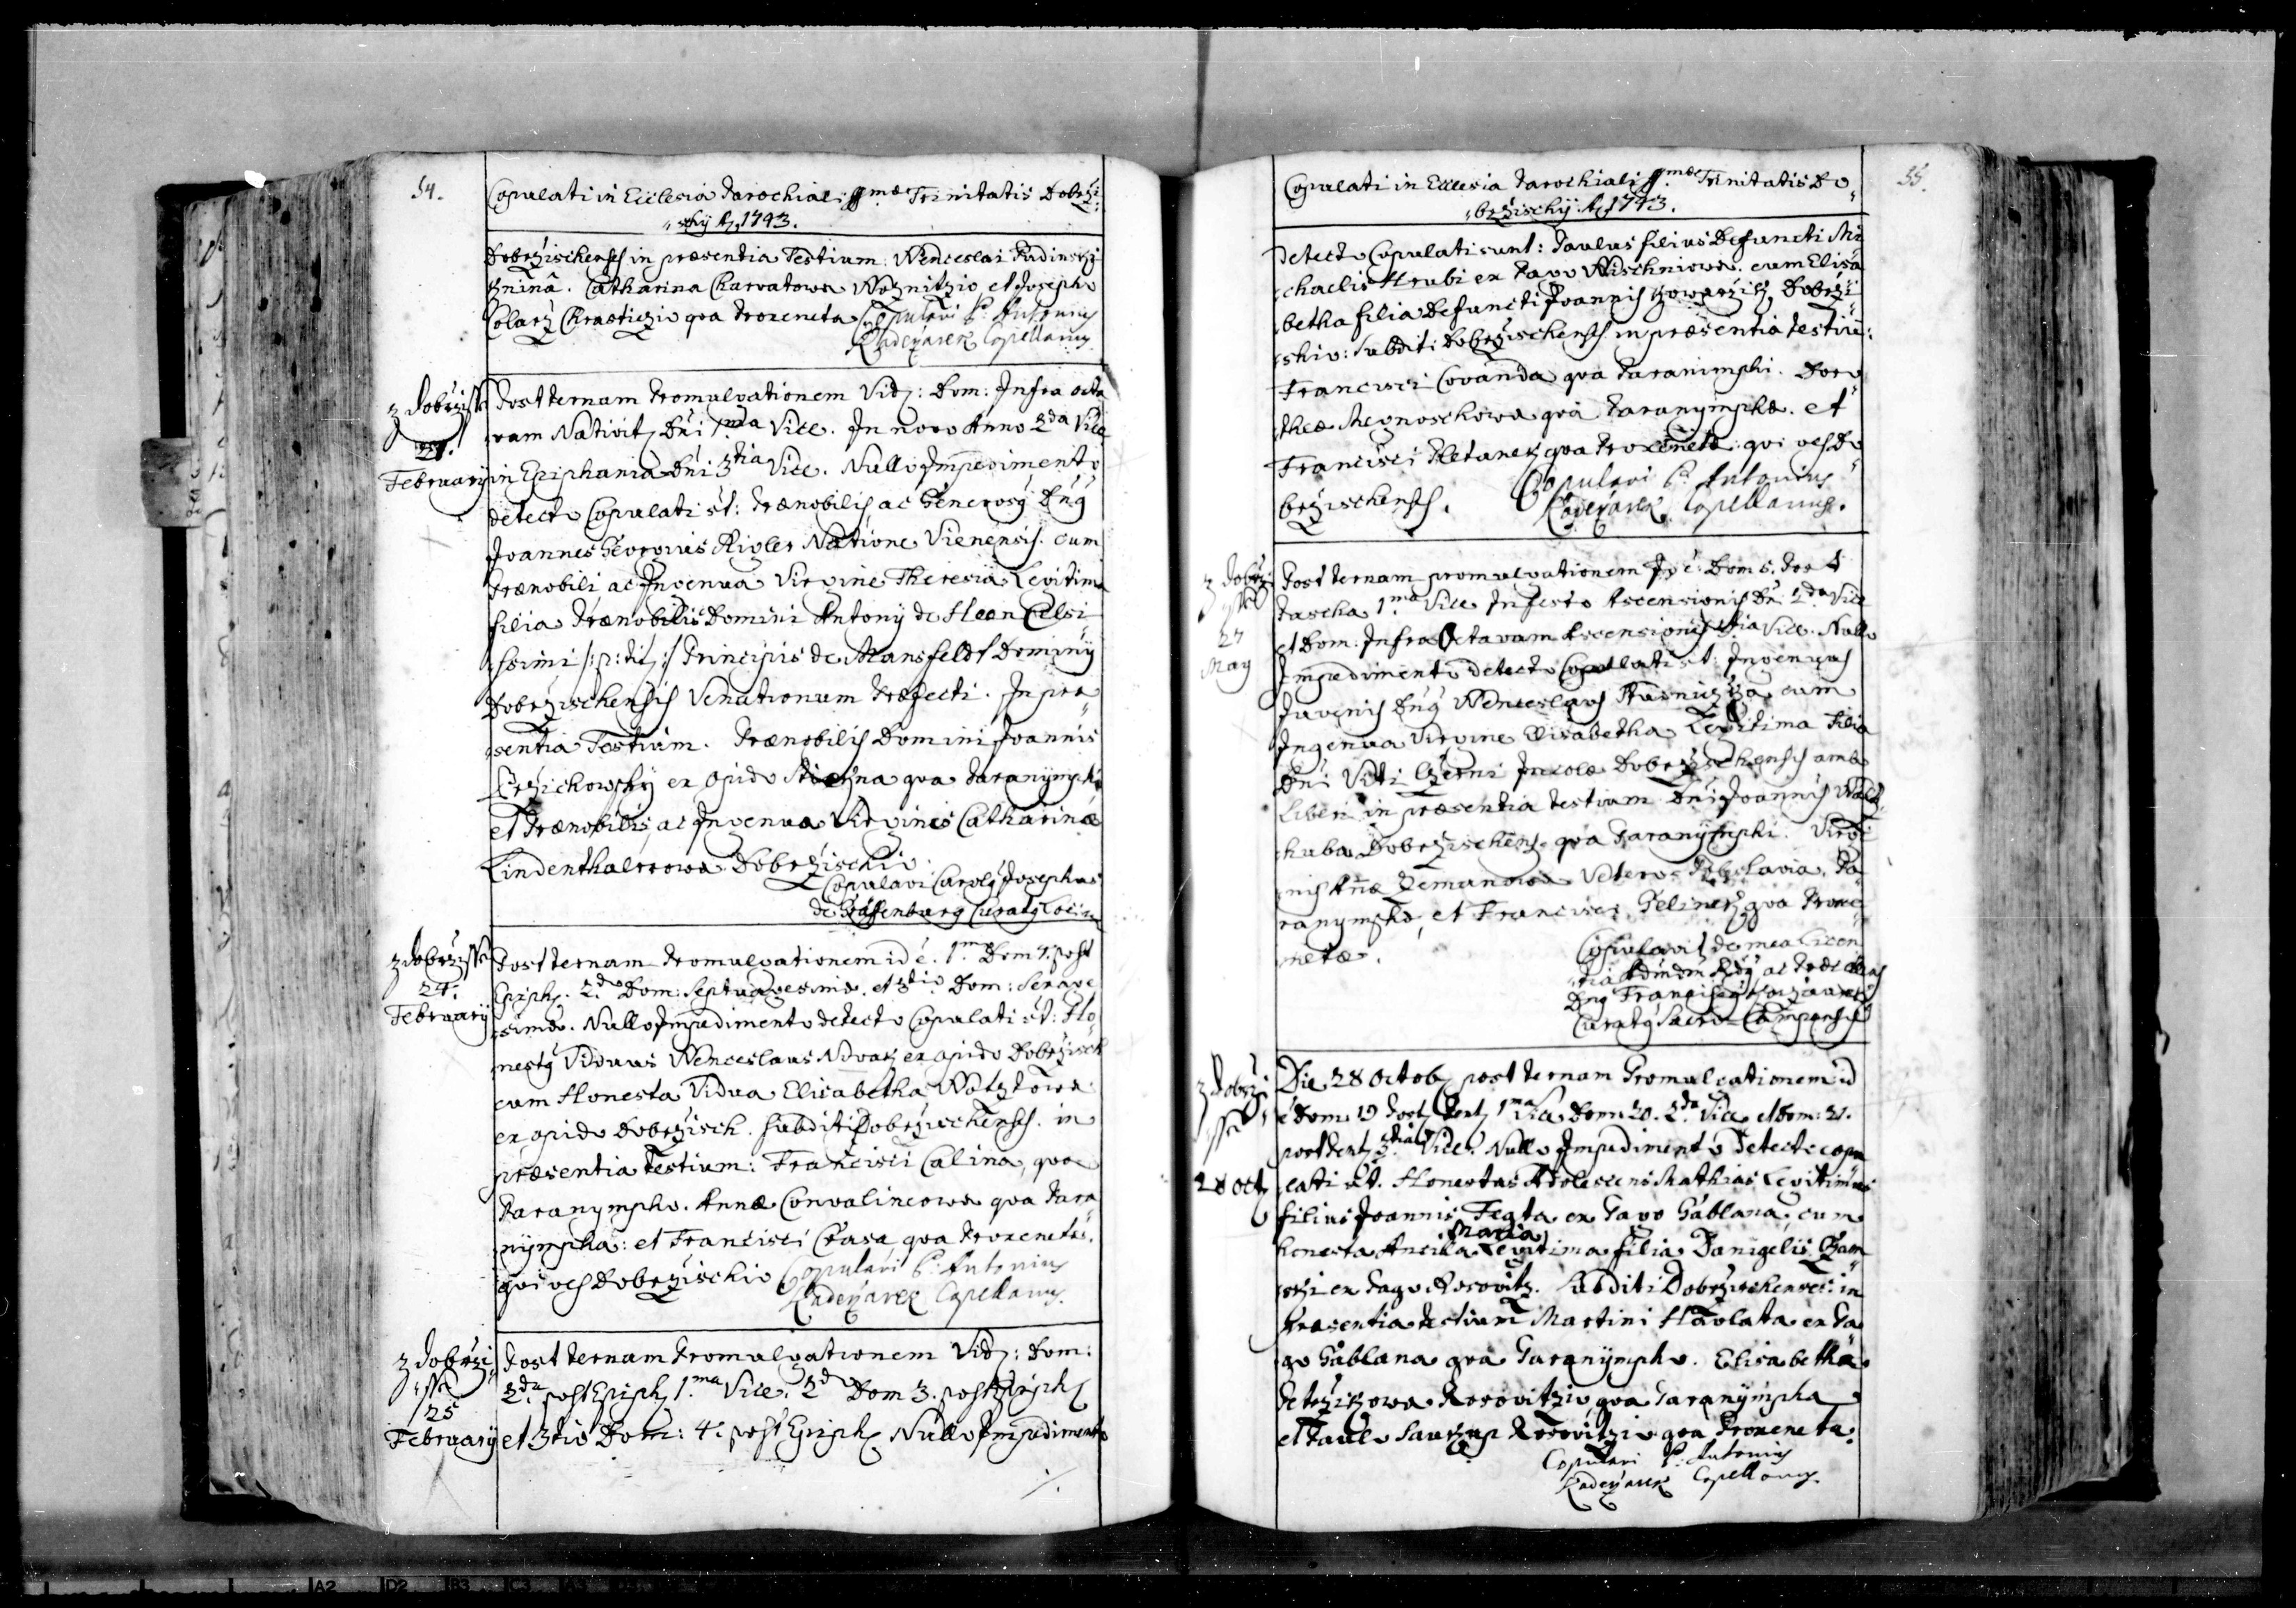 54.
Copulati in Ecclesia Parochiali SSmae Trinitatis Dobrzi
schy A. 1743.
Dobrzischensis in praesentia Testium: Wenceslai
Catharina Charvatowa Woznitzio et Josepho
Colarz Chrasticzio qva Proxeneta Copulavi P. Antonius
Kadeřavek Capellanus.
z Dobrzissie
February
Post ternam Promulgationem Vid: Dom: Infra octa
vam Nativit Dni 1ma Vice. In novo Anno 2da Vice
in Epiphania Dni 3tia Vice. Nullo Impedimento
detecto Copulati st: Praenobilis ac Generosg Dng
Joannes Georgius Rigler Natione Vienensis. cum
Praenobili ac Ingenua Virgine Theresia Legitima
filia Praenobilis Domini Antony de Heen Celsi
ssimi /:p:tit:/ Principis de Mansfeldt Dominy
Dobrzischensis Venationum Praefecti. In prae
sentia Testium. Praenobilis Domini Joannis
ex opido qva Paranymphi
et Praenobilis ac Ingenuae Virginis Catharinae
Lindenthalerowa Dobrzischio.
Copulavi Carolg Josephus
de Graffenburg Curatg Loci
z Dobrzissie
24.
February
Post ternam Promulgationem id e. 1m Dom 4. post
Epiph. 2do Dom: Septuagesima. et 3tio Dom: Sexage
sima. Nullo Impedimento detecto Copulati st: Ho
nestg Viduus Wenceslaus Nowak ex opido Dobrzisch
cum Honesta Vidua Elisabetha
ex opido Dobrzisch. subditi Dobrzischensis. in
praesentia Testium: Francisci Calina, qva
Paranympho. Annae Convalincowa qva Para
nympha: et Francisci Crasa qva Proxeneta.
qvi oes Dobrzischio Copulavi P. Antonius
Kadeřavek Capellanus.
z Dobrzi
ssie
25
February
Post ternam Promulgationem Vid: Dom:
2da post Epiph 1ma Vice. 2do Dom 3. post Epiph
et 3tio Dom: 4. post Epiph Nullo Impedimento
./.
55.
Copulati in Ecclesia Parochiali SSmae Trinitatis Do
brzischy A. 1743.
detecto Copulati sunt: Paulus filius Defuncti Mi
chaelis Hrubi ex Pago Wischniowa. cum Elisa
betha filia Defuncti Joannis Dobrzi
schio: Subditi Dobrzischensis in praesentia testiu:
Francisci Covanda qva Paranimphi. Doro
theae qva Paranymphae. et
Francisci qva Proxeneta: qvi oes Do
brzischensis. Copulavi P. Antonius
Kadeřavek Capellanus.
z Dobrzi
ssie
27
May
Post ternam promulgationem Id e: Dom 5. Post
Pascha 1ma Vice In festo Ascensionis Dni 2da Vice
et Dom: Infra Octavam Ascensionis 3tia Vice. Nullo
Impedimento detecto Copulati st: Ingenuus
Juvenis Dng Wenceslaus cum
Ingenua Virgine Elisabetha Legitima filia
Dni Viti Czerni Incolae Dobrzischensis ambo
Liberi in praesentia testium Dni Joannis
huba Dobrzischens. qva Paranymphi. Virgi
nis Annae Zemanowa Pa
ranympha, et Francisci Gelinek qva Proxe
netae.
Copulavit de mea licen
tia ac
Dng Franciscg
Curatg
z Dobrzi
ssie
28 Octb
Die 28 Octob post ternam Promulgationem id
e Dom: 19 Post Pent 1ma Vice Dom: 20. 2da Vice et Dom: 21.
post Pent 3tia Vice. Nullo Impedimento detecto copu
lati st. Honestus Adolescens Mathias Legitimus
filius Joannis Fegta ex Pago Gablana, cum
honesta Ancilla Maria Legitima filia
ex Pago Rosovitz. Subditi Dobrzischenses: in
Praesentia testium Martini Hawlata ex Pa
go Gablana qva Paranympho. Elisabetha
Rosovitzio qva Paranympha
et Paulo Rosovitzio qva Proxeneta.
Copulavi P: Antonius
Kadeřavek Capellanus.